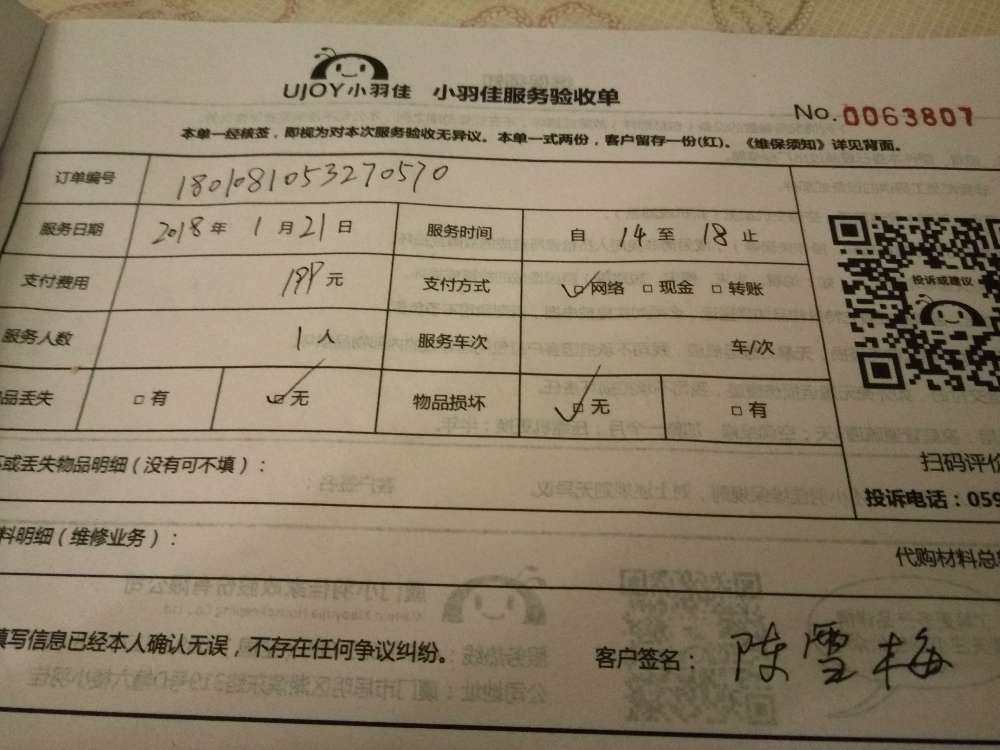 UJOY小羽佳 小羽佳服务验收单
No.0063807
本单一经核签，即视为对本次服务验收无异议。本单一式两份，客户留存一份(红)。《维保须知》详见背面。
订单编号 1801081053270570
服务日期 2018年1月21日 服务时间 自14至18止
支付费用 199元 支付方式 ☑网络 □现金 □转账
投诉或建议
服务人数 1人 服务车次 车/次
品丢失 □有 ☑无 物品损坏 ☑无 □有
或丢失物品明细（没有可不填）：
扫码评价
投诉电话：059
料明细（维修业务）：
代购材料总
填写信息已经本人确认无误，不存在任何争议纠纷。 客户签名：陈雪梅